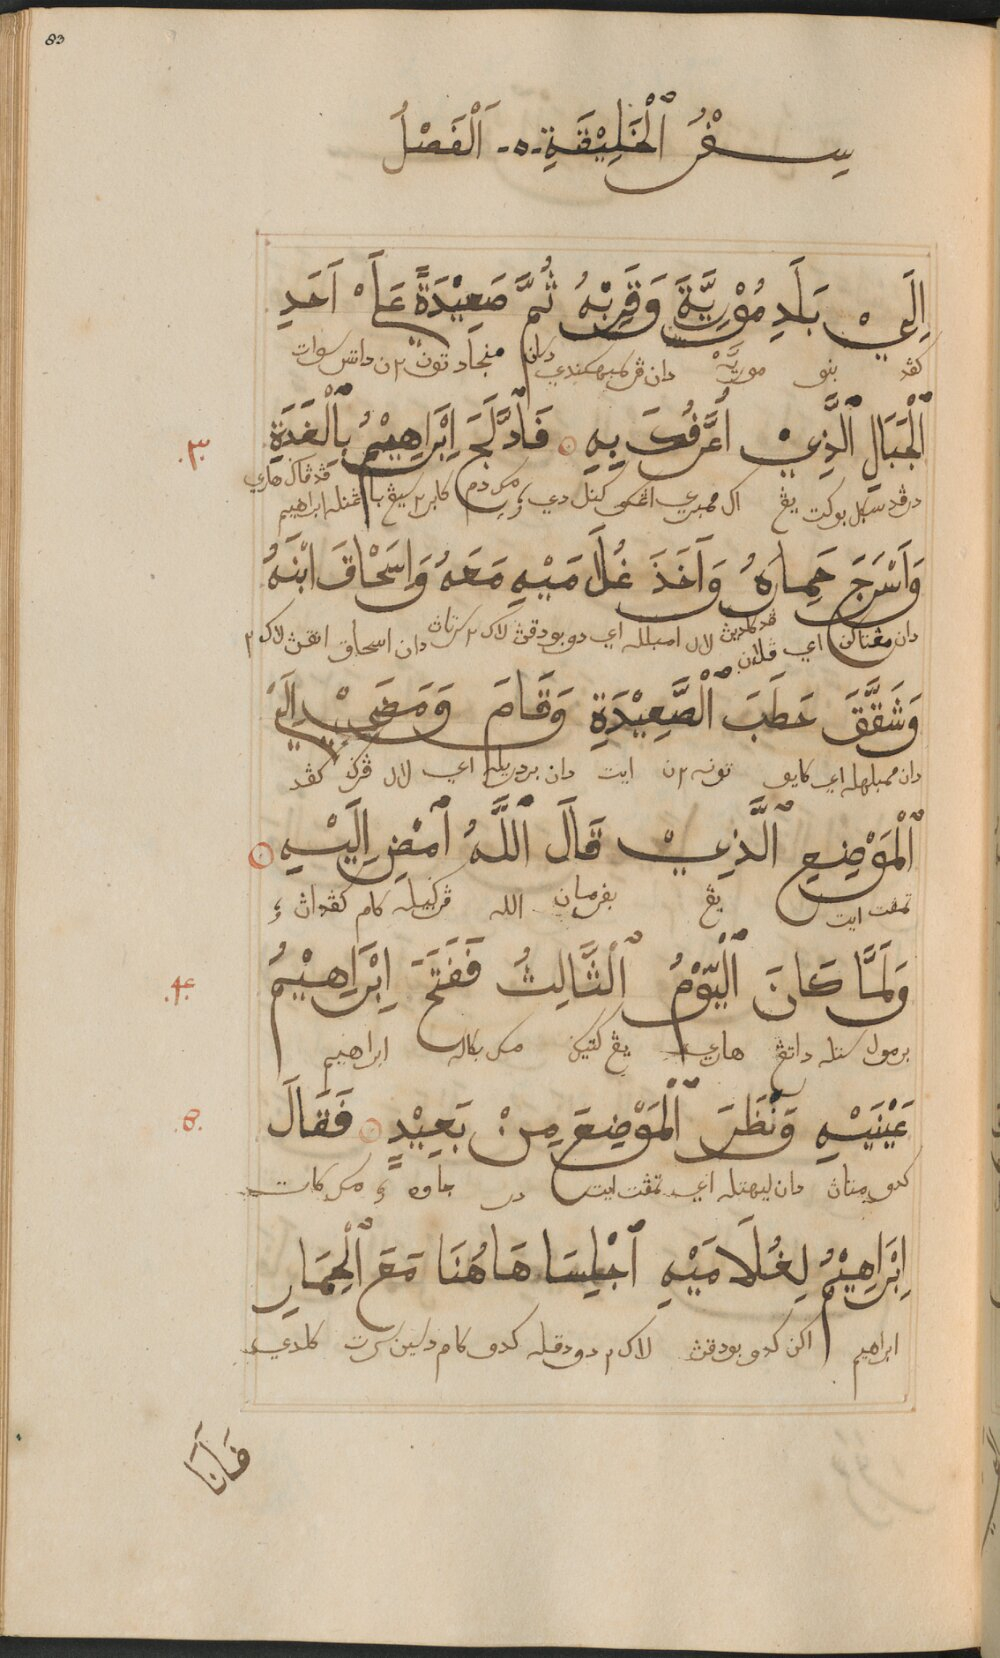 83
سِفْرُ ٱلْخَلِيْقَةِ -٥- اَلْفَصْلُ
اِلَيْ بَلَدِ مُوْرِيَّةَ وَقَرِّبْهُ ثُمَّ صَعِيْدَةً عَلَيْ اَحَدِ
كڤد بنو موريّه دان ڤرسمبهكندي دسان منجاد تونن ٢ن داتس سوات
ٱلْجِبَالِ ٱلَّذِيْ اُعَرِّفُكَ بِهِ فَٱدَّلَجَ اِبْرَاهِيْمُ بِٱلْغَدَةِ
.٣.
درڤد سكل بوكت يڠ اك ممبري اڠكو كنل دي مك دم باڠنله ابراهيم ڤد ڤاك هاري
وَاَسْرَجَ حِمَارَهُ وَاَخَذَ غُلَامَيْهِ مَعَهُ وَاِسْحَاقَ ابْنَهُ
دان اي لال امبلله اي دو بودقڽ لاك٢ سرتاڽ دان اسحاق انقڽ لاك٢
وَشَقَّقَ حَطَبَ ٱلْصَّعِيْدَةِ وَقَامَ وَمَضَيْ اِلَيْ
دان ممبلهله اي كايو تونو ٢ن ايت دان برديريله اي لال ڤرڬي كڤد
ٱلْمَوْضِعِ ٱلَّذِيْ قَالَ ٱللَّهُ ٱمْضِ اِلَيْهِ
تمڤت ايت يڠ برفرمان الله ڤركيله كامو كڤداڽ
وَلَمَّا كَانَ ٱلْيَوْمُ ٱلْثَّالِثُ فَفَتَحَ اِبْرَاهِيْمُ
.۴.
برمول ستله داتڠ هاري يڠ كتيك مك بكاله ابراهيم
عَيْنَيْهِ وَنَظَرَ ٱلْمَوْضِعَ مِنْ بَعِيْدٍ فَقَالَ
.٥.
كدو متاڽ دان ليهتله اي تمڤت ايت در جاوه مك كات
اِبْرَاهِيْمُ لِغُلَامَيْهِ ٱجْلِسَا هَاهُنَا مَعَ ٱلْحِمَارِ
ابراهيم اكن كدو بودقڽ لاك٢ دودقله كدو كامو دسين سرت كلدي
فَاَنَا